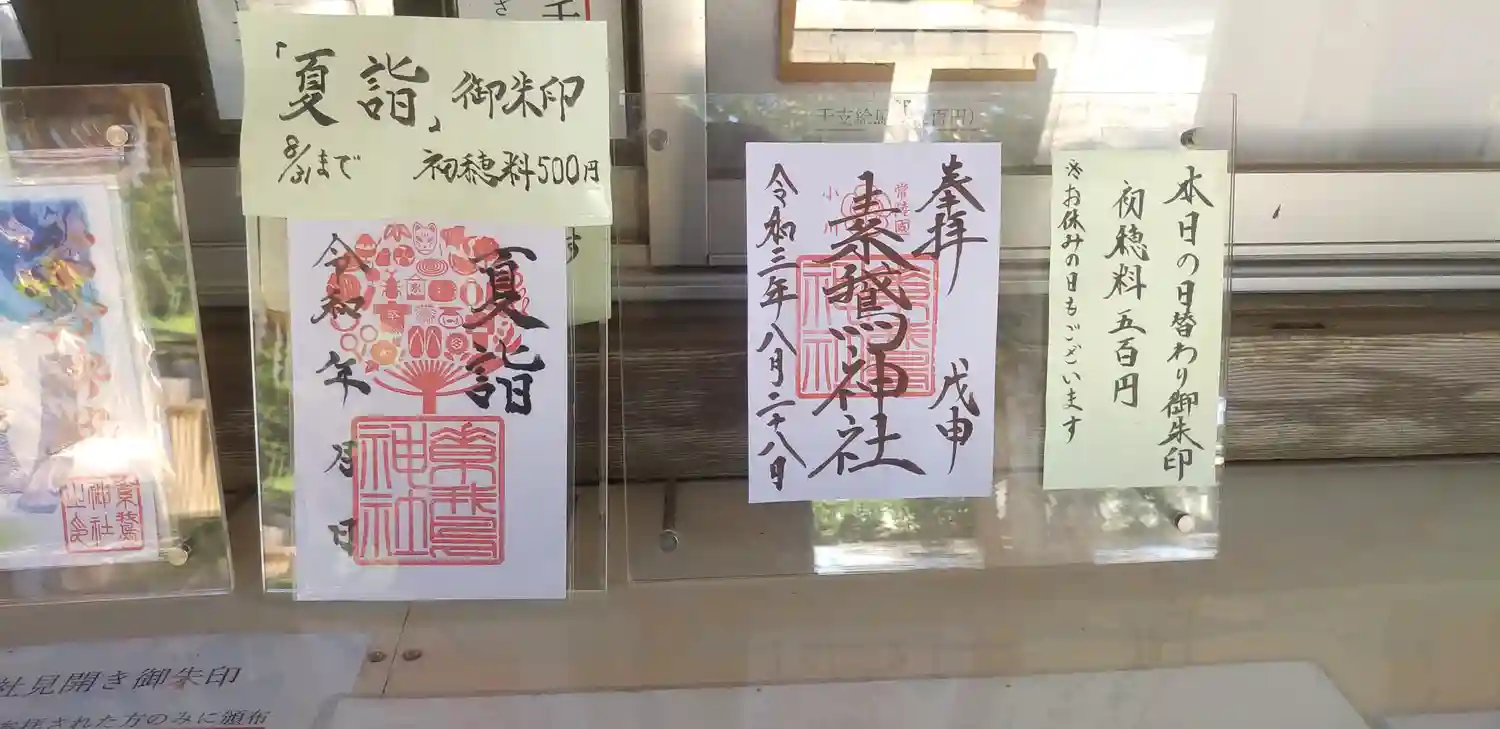 「夏詣」御朱印
8/31まで 初穂料500円
夏詣
令和 年 月 日
素鵞神社
奉拝 戊申
常陸國
小川
素鵞神社
令和三年八月二十八日
本日の日替わり御朱印
初穂料 五百円
※お休みの日もございます
干支絵馬
百円）
素鵞
神社
社見開き御朱印
お拝された方のみに頒布